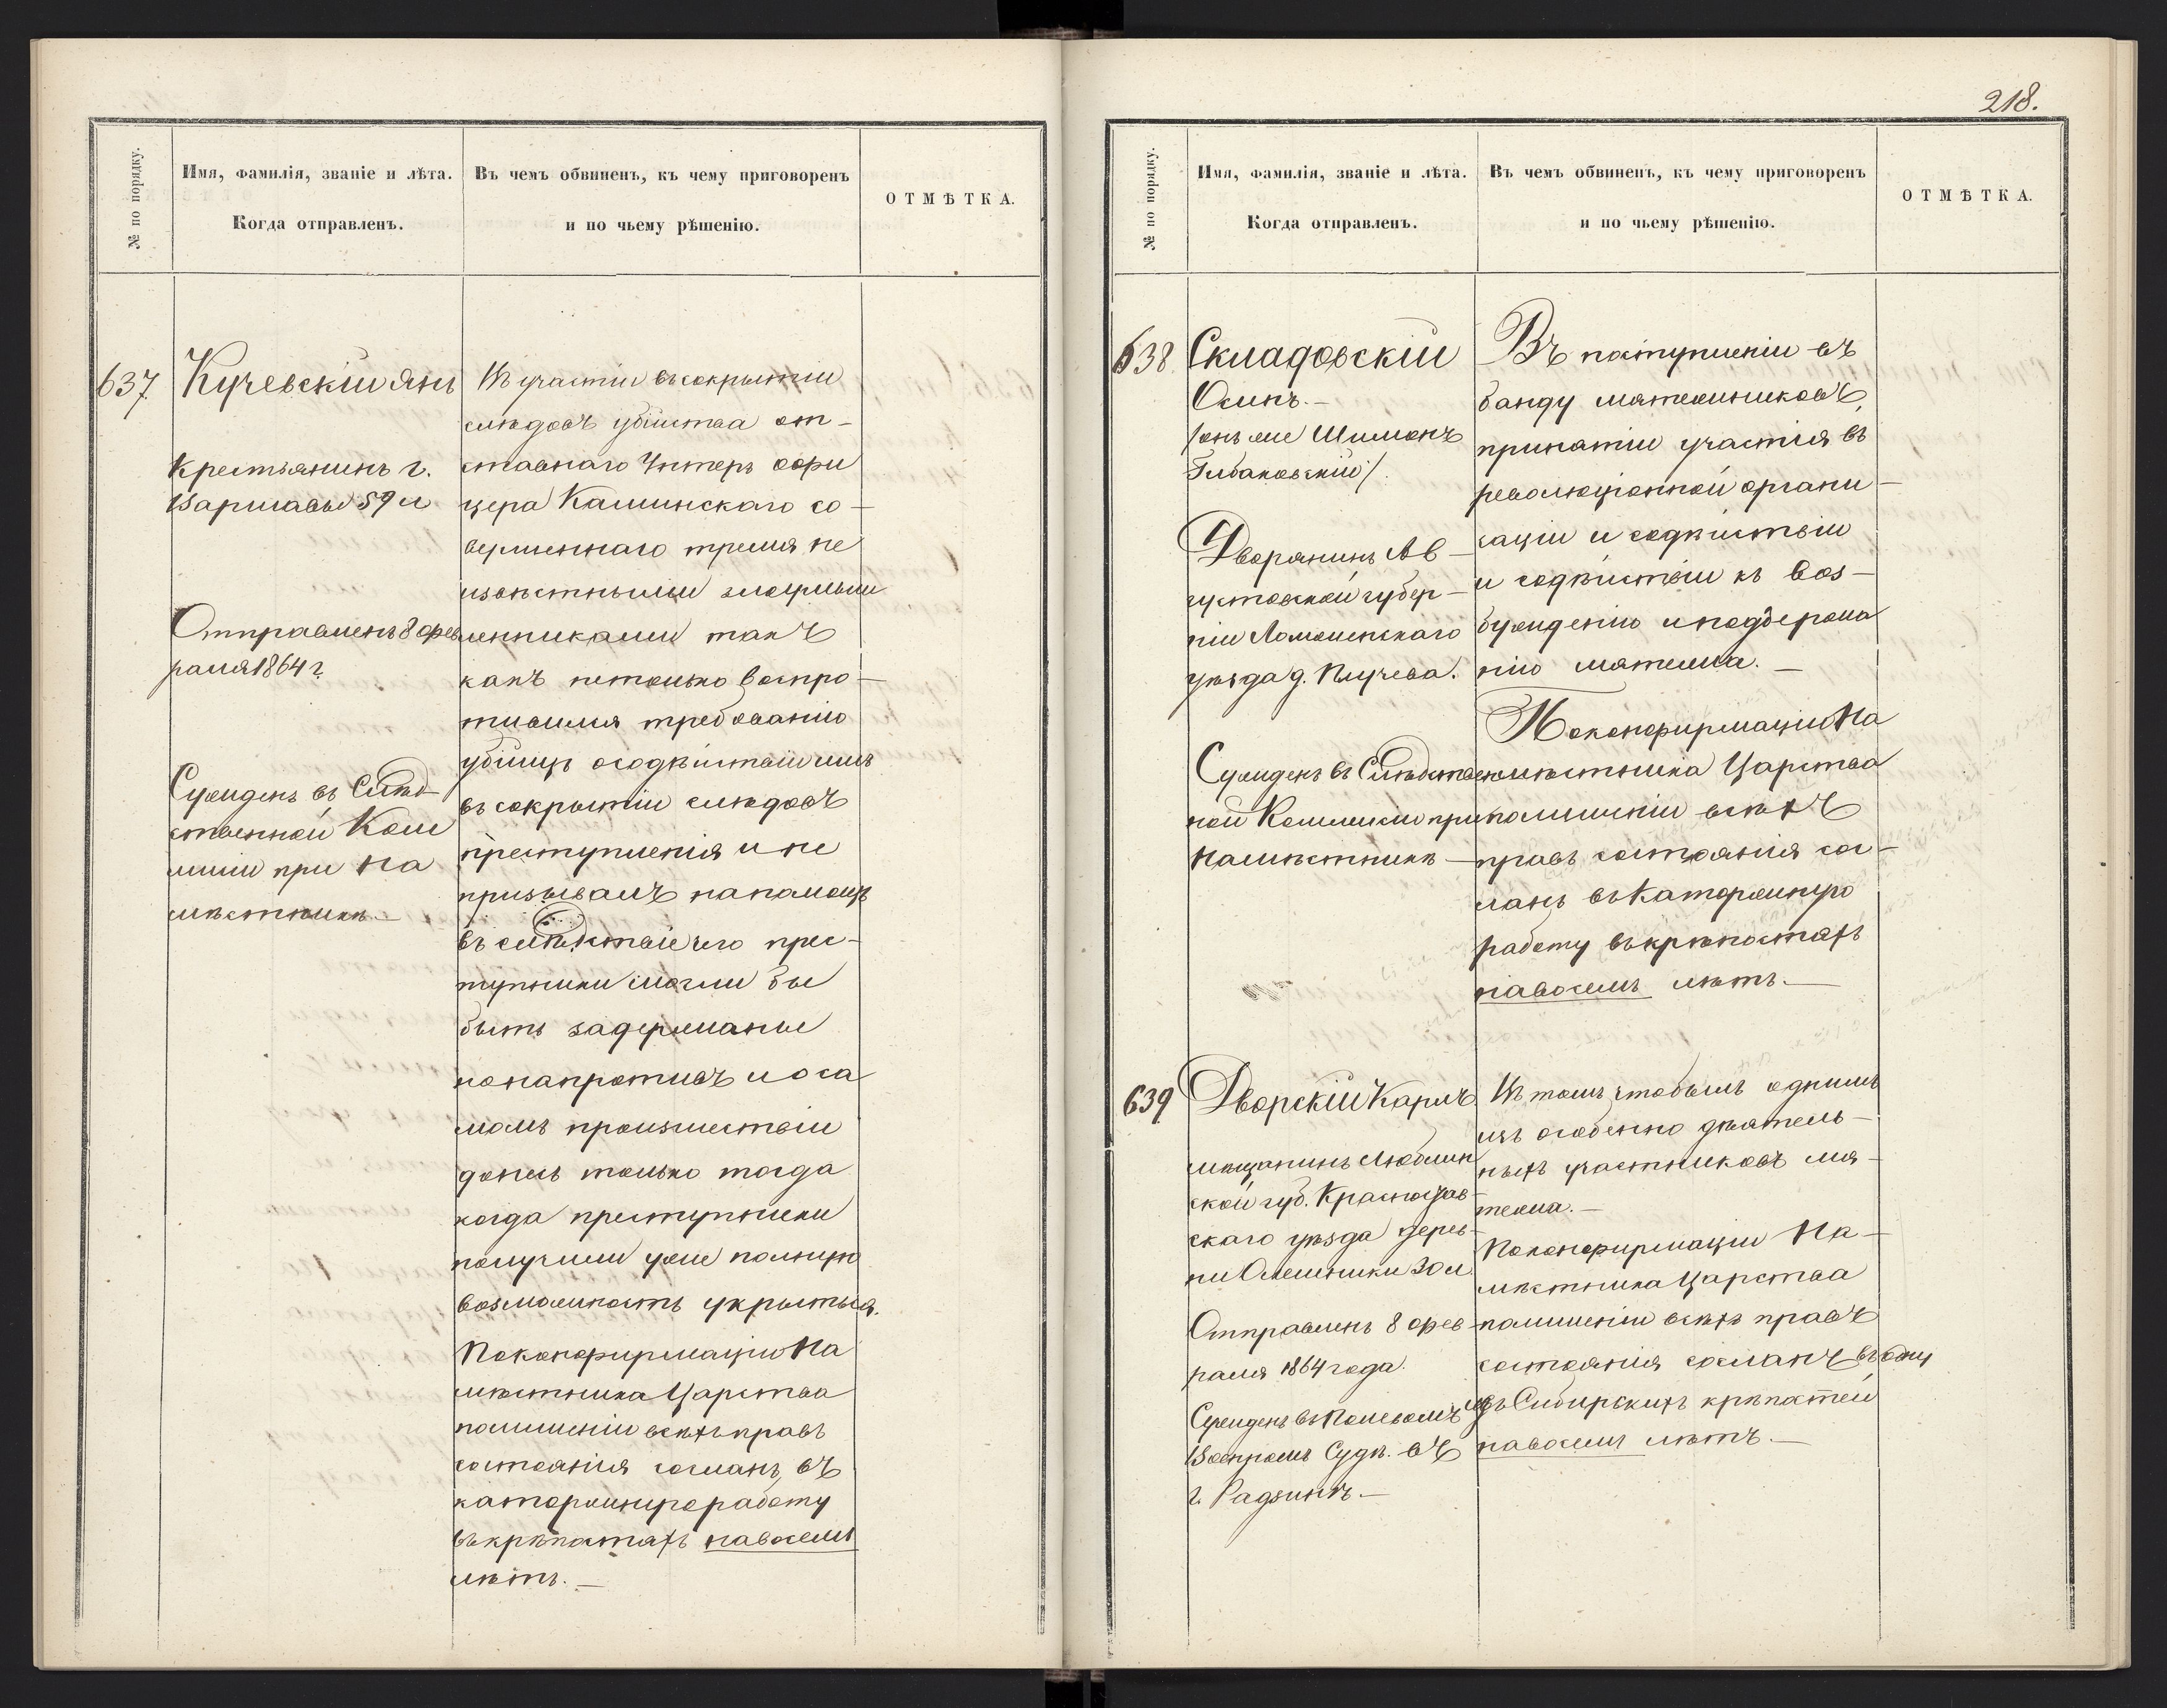 218.
№ по порядку.
Имя, фамилія, званіе и лѣта.
Когда отправленъ.
Въ чемъ обвиненъ, къ чему приговоренъ
и по чьему рѣшенію.
ОТМѢТКА.
637
Кучевскій Янъ
Крестьянинъ г.
Варшавы 59 л
Отправленъ 8 фев
раля 1864 г.
Сужденъ въ Слѣд
ственной Ком
мисіи при На
мѣстникѣ.—
Въ участіи въ сокрытіи
слѣдовъ убійства от-
ставнаго Унтеръ офи
цера Каминскаго со-
вершеннаго тремя не
извѣстными злоумыш
ленниками такъ
какъ нетолько воспро-
тивился требованію
убійцъ осодѣйствіи имъ
въ сокрытіи слѣдовъ
преступленія и не
призывалъ напомощь
въ слѣдствіе чего прес-
тупники могли бы
быть задержаны
нонапротивъ и о са
момъ произшествіи
донесъ только тогда
когда преступники
получили уже полную
возможность укрыться.
По конфирмаціи На
мѣстника Царства
полишеніи всѣхъ правъ
состоянія сосланъ, въ
каторжную работу
въ крѣпостяхъ навосемь
лѣтъ.—
№ по порядку.
Имя, фамилія, званіе и лѣта.
Когда отправленъ.
Въ чемъ обвиненъ, къ чему приговоренъ
и по чьему рѣшенію.
ОТМѢТКА.
638
Складовскій
Осипъ.—
/онъ же Шимонъ
Глбаковскій/.
Дворянинъ Ав-
густовской губер-
ніи Ломженскаго
уѣзда д. Плучева.
Сужденъ въ Слѣдствен
ной Коммисіи при
Намѣстникѣ—
Въ поступленіи въ
банду мятежниковъ,
принятіи участія въ
революціонной органи-
заціи и содѣйствіи
и содѣйствіи къ воз-
бужденію и поддержа
нію мятежа.—
По конфирмаціи На
мѣстника Царства
полишеніи всѣхъ
правъ состоянія сос-
ланъ въ Каторжную
работу въ крѣпостяхъ
навосемь лѣтъ.—
639
Дворскій Карлъ
мѣщанинъ Люблин
ской губ. Красностав-
скаго уѣзда дерев-
ни Олешники 30 л
Отправленъ 8 фев-
раля 1864 года.
Сужденъ въ Полевомъ
Военномъ Судѣ. въ
г. Радзинѣ.—
Въ томъ что былъ однимъ
изъ особенно дѣятель-
ныхъ участниковъ мя-
тежа.—
По конфирмаціи На-
мѣстника Царства
полишеніи всѣхъ правъ
состоянія сосланъ въ одну
изъ Сибирскихъ крѣпостей
навосемь лѣтъ.—